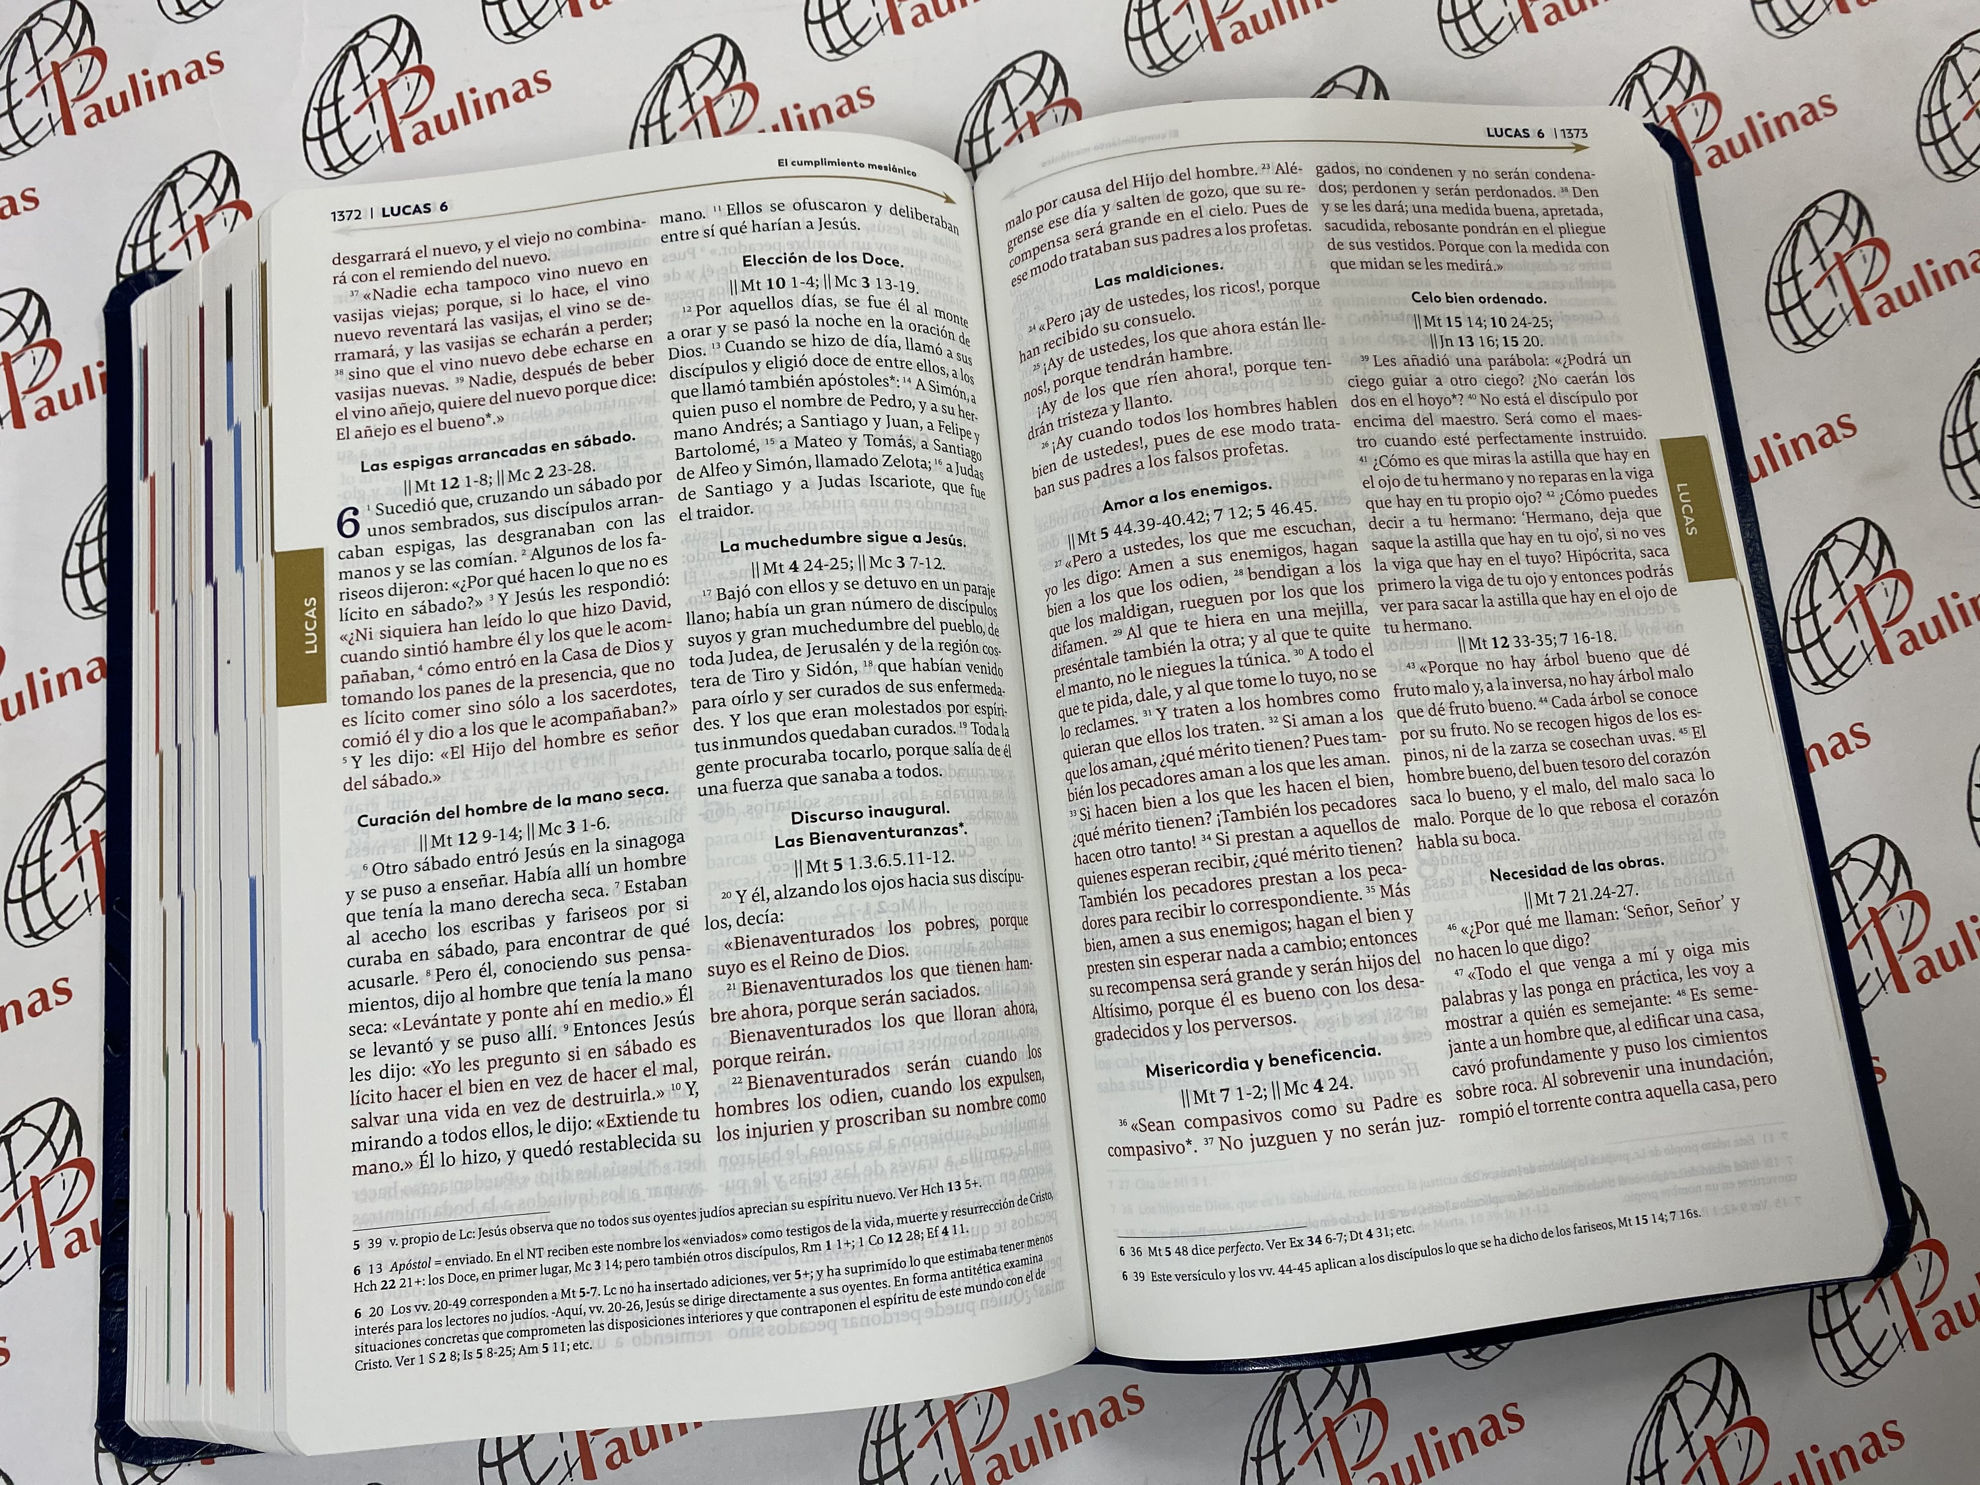 1372 | LUCAS 6
El cumplimiento mesiánico
desgarrará el nuevo, y el viejo no combina-
rá con el remiendo del nuevo.
37 «Nadie echa tampoco vino nuevo en
vasijas viejas; porque, si lo hace, el vino
nuevo reventará las vasijas, el vino se de-
rramará, y las vasijas se echarán a perder;
38 sino que el vino nuevo debe echarse en
vasijas nuevas. 39 Nadie, después de beber
el vino añejo, quiere del nuevo porque dice:
El añejo es el bueno*.»
Las espigas arrancadas en sábado.
|| Mt 12 1-8; || Mc 2 23-28.
6 1 Sucedió que, cruzando un sábado por
unos sembrados, sus discípulos arran-
caban espigas, las desgranaban con las
manos y se las comían. 2 Algunos de los fa-
riseos dijeron: «¿Por qué hacen lo que no es
lícito en sábado?» 3 Y Jesús les respondió:
«¿Ni siquiera han leído lo que hizo David,
cuando sintió hambre él y los que le acom-
pañaban, 4 cómo entró en la Casa de Dios y
tomando los panes de la presencia, que no
es lícito comer sino sólo a los sacerdotes,
comió él y dio a los que le acompañaban?»
5 Y les dijo: «El Hijo del hombre es señor
del sábado.»
Curación del hombre de la mano seca.
|| Mt 12 9-14; || Mc 3 1-6.
6 Otro sábado entró Jesús en la sinagoga
y se puso a enseñar. Había allí un hombre
que tenía la mano derecha seca. 7 Estaban
al acecho los escribas y fariseos por si
curaba en sábado, para encontrar de qué
acusarle. 8 Pero él, conociendo sus pensa-
mientos, dijo al hombre que tenía la mano
seca: «Levántate y ponte ahí en medio.» Él
se levantó y se puso allí. 9 Entonces Jesús
les dijo: «Yo les pregunto si en sábado es
lícito hacer el bien en vez de hacer el mal,
salvar una vida en vez de destruirla.» 10 Y,
mirando a todos ellos, le dijo: «Extiende tu
mano.» Él lo hizo, y quedó restablecida su
mano. 11 Ellos se ofuscaron y deliberaban
entre sí qué harían a Jesús.
Elección de los Doce.
|| Mt 10 1-4; || Mc 3 13-19.
12 Por aquellos días, se fue él al monte
a orar y se pasó la noche en la oración de
Dios. 13 Cuando se hizo de día, llamó a sus
discípulos y eligió doce de entre ellos, a los
que llamó también apóstoles*: 14 A Simón, a
quien puso el nombre de Pedro, y a su her-
mano Andrés; a Santiago y Juan, a Felipe y
Bartolomé, 15 a Mateo y Tomás, a Santiago
de Alfeo y Simón, llamado Zelota; 16 a Judas
de Santiago y a Judas Iscariote, que fue
el traidor.
La muchedumbre sigue a Jesús.
|| Mt 4 24-25; || Mc 3 7-12.
17 Bajó con ellos y se detuvo en un paraje
llano; había un gran número de discípulos
suyos y gran muchedumbre del pueblo, de
toda Judea, de Jerusalén y de la región cos-
tera de Tiro y Sidón, 18 que habían venido
para oírlo y ser curados de sus enfermeda-
des. Y los que eran molestados por espíri-
tus inmundos quedaban curados. 19 Toda la
gente procuraba tocarlo, porque salía de él
una fuerza que sanaba a todos.
Discurso inaugural.
Las Bienaventuranzas*.
|| Mt 5 1.3.6.5.11-12.
20 Y él, alzando los ojos hacia sus discípu-
los, decía:
«Bienaventurados los pobres, porque
suyo es el Reino de Dios.
21 Bienaventurados los que tienen ham-
bre ahora, porque serán saciados.
Bienaventurados los que lloran ahora,
porque reirán.
22 Bienaventurados serán cuando los
hombres los odien, cuando los expulsen,
los injurien y proscriban su nombre como
5 39 v. propio de Lc: Jesús observa que no todos sus oyentes judíos aprecian su espíritu nuevo. Ver Hch 13 5+.
6 13 Apóstol = enviado. En el NT reciben este nombre los «enviados» como testigos de la vida, muerte y resurrección de Cristo,
Hch 22 21+: los Doce, en primer lugar, Mc 3 14; pero también otros discípulos, Rm 1 1+; 1 Co 12 28; Ef 4 11.
6 20 Los vv. 20-49 corresponden a Mt 5-7. Lc no ha insertado adiciones, ver 5+; y ha suprimido lo que estimaba tener menos
interés para los lectores no judíos. -Aquí, vv. 20-26, Jesús se dirige directamente a sus oyentes. En forma antitética examina
situaciones concretas que comprometen las disposiciones interiores y que contraponen el espíritu de este mundo con el de
Cristo. Ver 1 S 2 8; Is 5 8-25; Am 5 11; etc.
LUCAS
LUCAS 6 | 1373
malo por causa del Hijo del hombre. 23 Alé-
grense ese día y salten de gozo, que su re-
compensa será grande en el cielo. Pues de
ese modo trataban sus padres a los profetas.
Las maldiciones.
24 «Pero ¡ay de ustedes, los ricos!, porque
han recibido su consuelo.
25 ¡Ay de ustedes, los que ahora están lle-
nos!, porque tendrán hambre.
¡Ay de los que ríen ahora!, porque ten-
drán tristeza y llanto.
26 ¡Ay cuando todos los hombres hablen
bien de ustedes!, pues de ese modo trata-
ban sus padres a los falsos profetas.
Amor a los enemigos.
|| Mt 5 44.39-40.42; 7 12; 5 46.45.
27 «Pero a ustedes, los que me escuchan,
yo les digo: Amen a sus enemigos, hagan
bien a los que los odien, 28 bendigan a los
que los maldigan, rueguen por los que los
difamen. 29 Al que te hiera en una mejilla,
preséntale también la otra; y al que te quite
el manto, no le niegues la túnica. 30 A todo el
que te pida, dale, y al que tome lo tuyo, no se
lo reclames. 31 Y traten a los hombres como
quieran que ellos los traten. 32 Si aman a los
que los aman, ¿qué mérito tienen? Pues tam-
bién los pecadores aman a los que les aman.
33 Si hacen bien a los que les hacen el bien,
¿qué mérito tienen? ¡También los pecadores
hacen otro tanto! 34 Si prestan a aquellos de
quienes esperan recibir, ¿qué mérito tienen?
También los pecadores prestan a los peca-
dores para recibir lo correspondiente. 35 Más
bien, amen a sus enemigos; hagan el bien y
presten sin esperar nada a cambio; entonces
su recompensa será grande y serán hijos del
Altísimo, porque él es bueno con los desa-
gradecidos y los perversos.
Misericordia y beneficencia.
|| Mt 7 1-2; || Mc 4 24.
36 «Sean compasivos como su Padre es
compasivo*. 37 No juzguen y no serán juz-
gados, no condenen y no serán condena-
dos; perdonen y serán perdonados. 38 Den
y se les dará; una medida buena, apretada,
sacudida, rebosante pondrán en el pliegue
de sus vestidos. Porque con la medida con
que midan se les medirá.»
Celo bien ordenado.
|| Mt 15 14; 10 24-25;
|| Jn 13 16; 15 20.
39 Les añadió una parábola: «¿Podrá un
ciego guiar a otro ciego? ¿No caerán los
dos en el hoyo*? 40 No está el discípulo por
encima del maestro. Será como el maes-
tro cuando esté perfectamente instruido.
41 ¿Cómo es que miras la astilla que hay en
el ojo de tu hermano y no reparas en la viga
que hay en tu propio ojo? 42 ¿Cómo puedes
decir a tu hermano: ‘Hermano, deja que
saque la astilla que hay en tu ojo’, si no ves
la viga que hay en el tuyo? Hipócrita, saca
primero la viga de tu ojo y entonces podrás
ver para sacar la astilla que hay en el ojo de
tu hermano.
|| Mt 12 33-35; 7 16-18.
43 «Porque no hay árbol bueno que dé
fruto malo y, a la inversa, no hay árbol malo
que dé fruto bueno. 44 Cada árbol se conoce
por su fruto. No se recogen higos de los es-
pinos, ni de la zarza se cosechan uvas. 45 El
hombre bueno, del buen tesoro del corazón
saca lo bueno, y el malo, del malo saca lo
malo. Porque de lo que rebosa el corazón
habla su boca.
Necesidad de las obras.
|| Mt 7 21.24-27.
46 «¿Por qué me llaman: ‘Señor, Señor’ y
no hacen lo que digo?
47 «Todo el que venga a mí y oiga mis
palabras y las ponga en práctica, les voy a
mostrar a quién es semejante: 48 Es seme-
jante a un hombre que, al edificar una casa,
cavó profundamente y puso los cimientos
sobre roca. Al sobrevenir una inundación,
rompió el torrente contra aquella casa, pero
6 36 Mt 5 48 dice perfecto. Ver Ex 34 6-7; Dt 4 31; etc.
6 39 Este versículo y los vv. 44-45 aplican a los discípulos lo que se ha dicho de los fariseos, Mt 15 14; 7 16s.
LUCAS
Paulinas
Paulinas
Paulinas
Paulinas
Paulinas
Paulinas